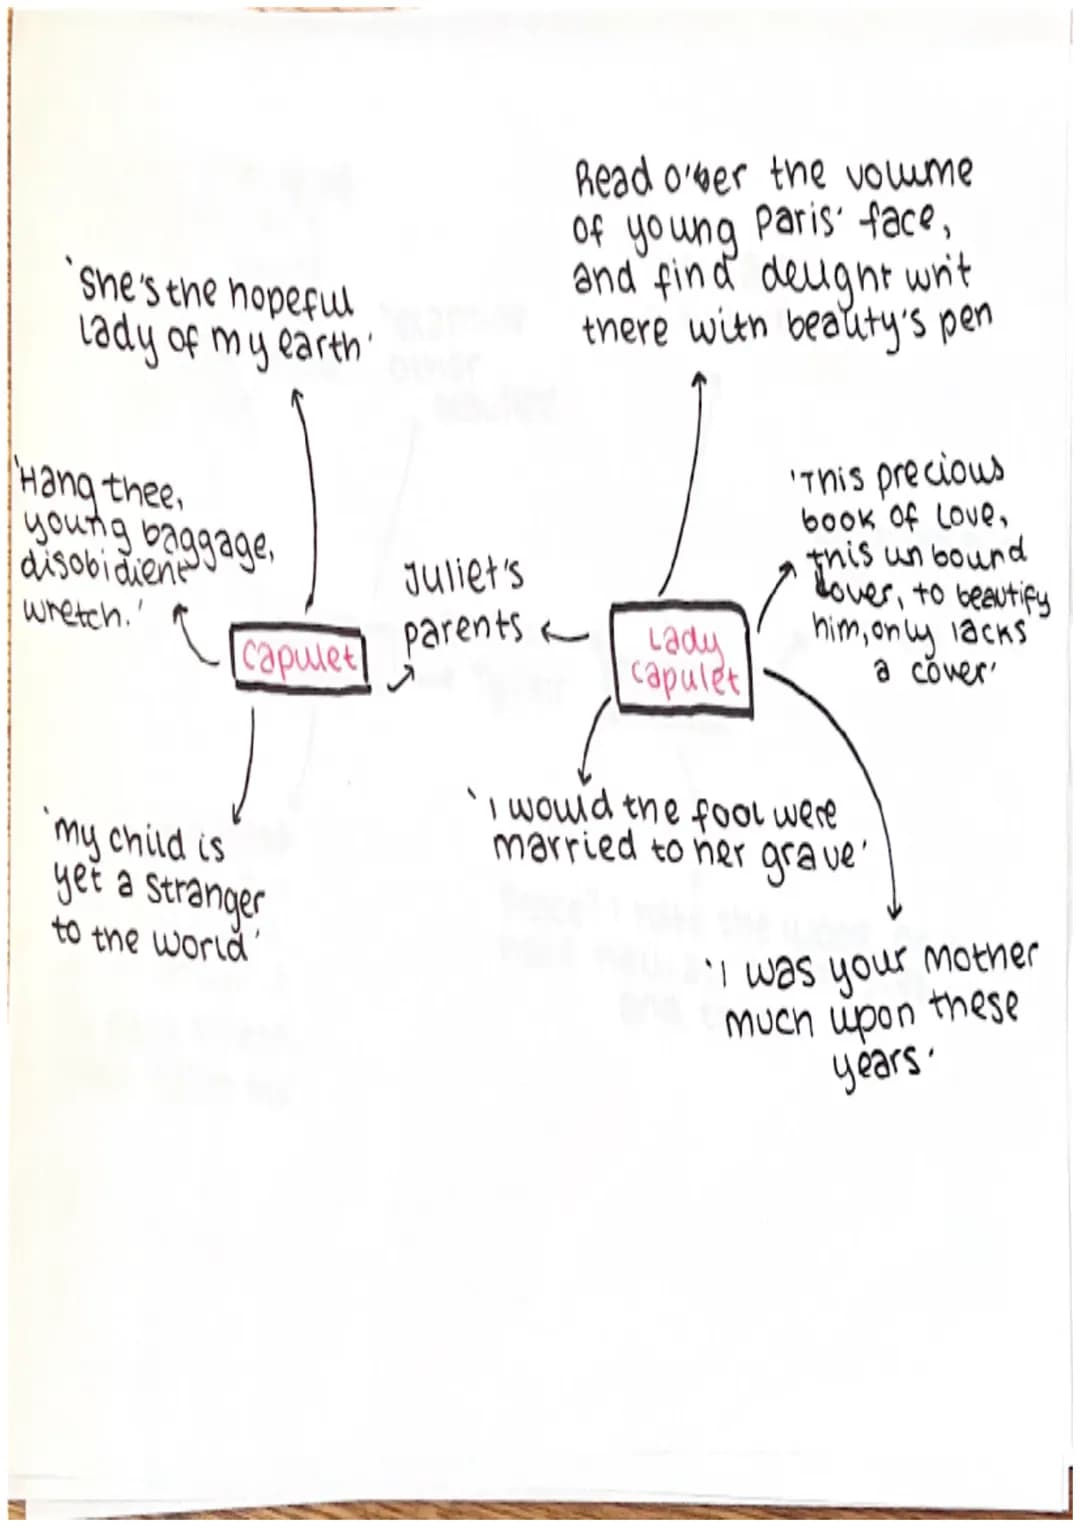 Read o'er the volume
of young Paris' face,
and find delight writ
there with beauty's pen
'She's the hopeful
lady of my earth'
'Hang thee,
young baggage,
disobidient
wretch.'
'This precious
book of love,
this unbound
lover, to beautify
him, only lacks
a cover'
Juliet's
parents
Capulet
Lady
Capulet
'I would the fool were
married to her grave'
'my child is
yet a stranger
to the world'
'I was your mother
much upon these
years.